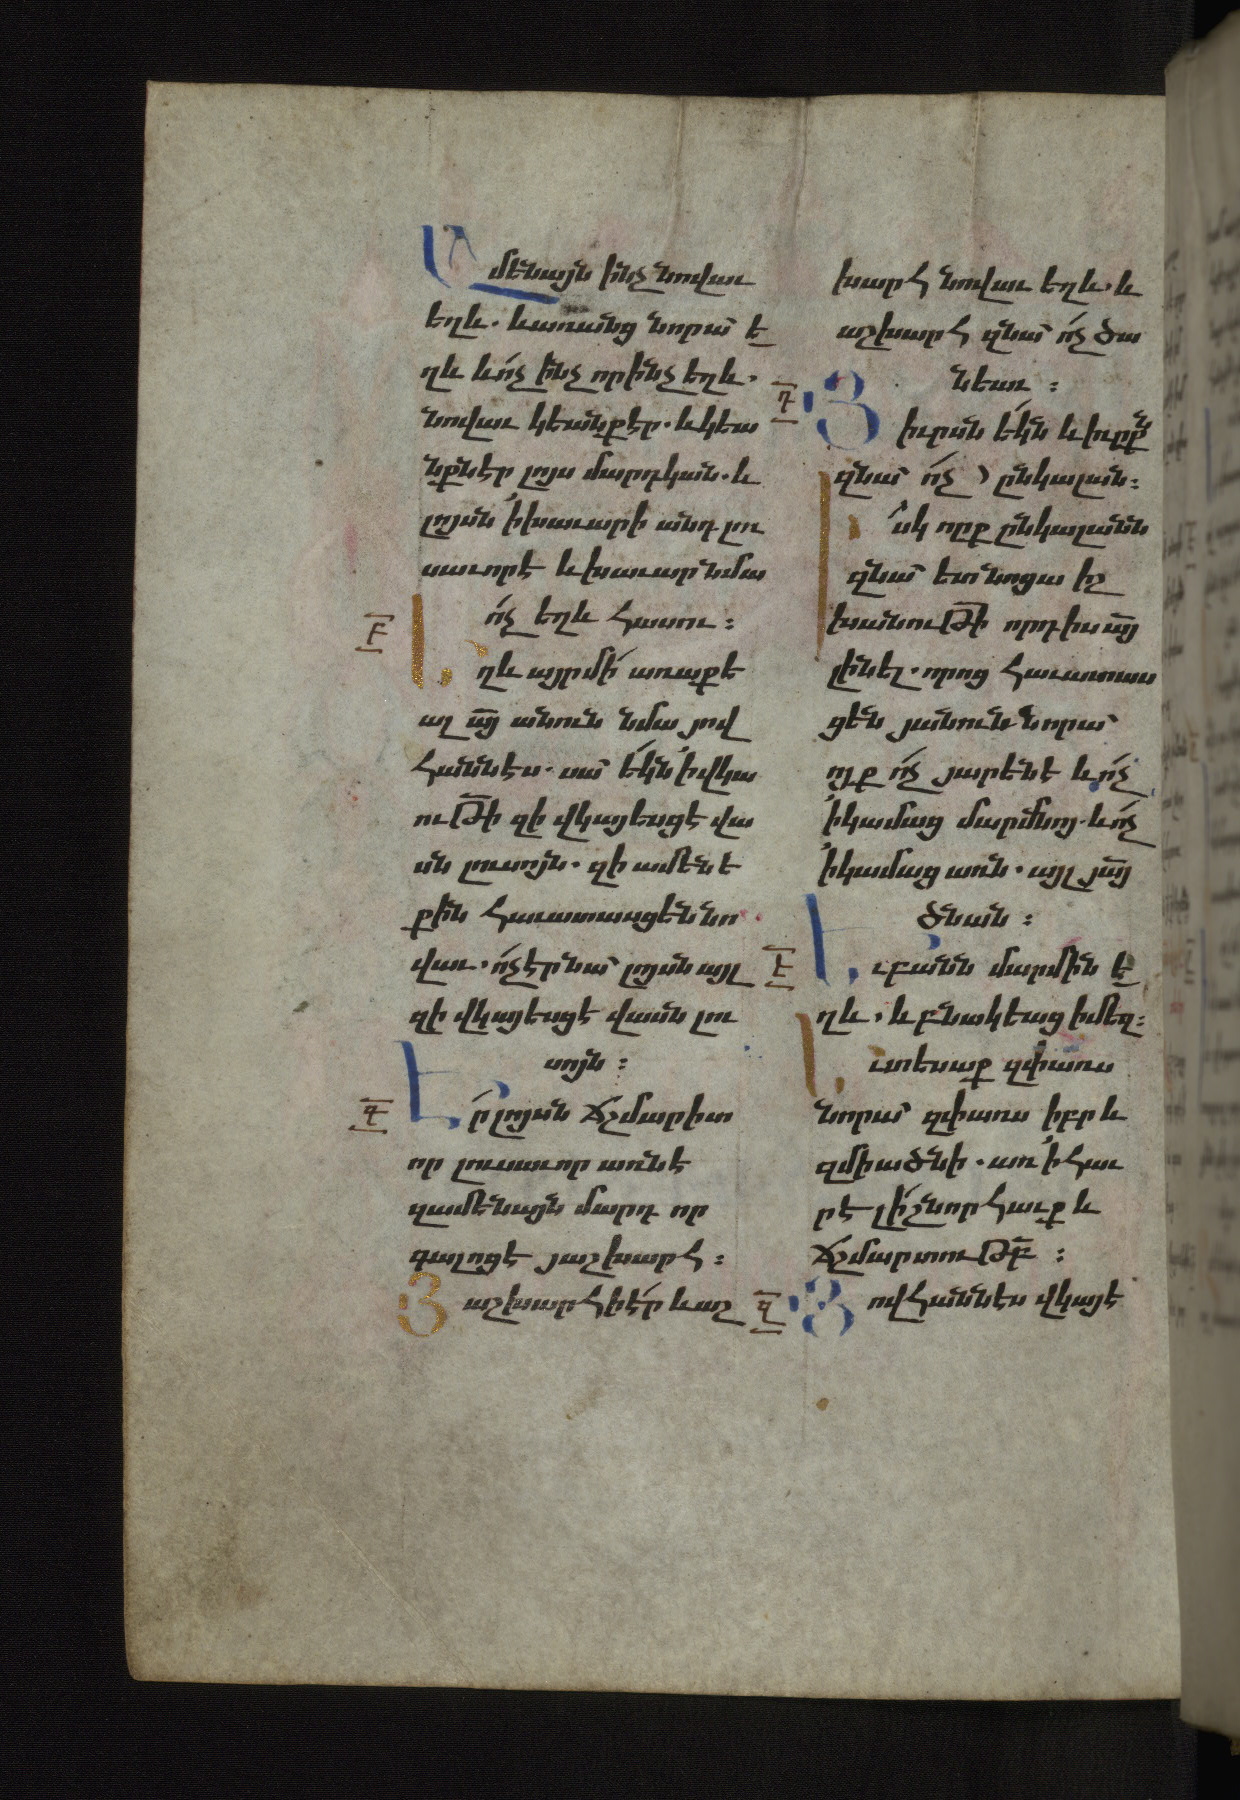 Ամենայն ինչ նովաւ
եղև. և առանց նորա՝ ե
ղև և ո՛չ ինչ որ ինչ եղև.
նովաւ կեանք էր. և կեա
նքն էր լոյս մարդկան. և
լոյսն ՛ի խաւարի անդ լու
սաւորէ և խաւար նմա
ո՛չ եղև հասու ։
Բ
Եղև այր մի՛ առաքե
ալ յա՟յ անուն նմա յով
հաննէս. սա՝ ե՛կն ՛ի վկա
ութի զի վկայեսցէ վա
սն լուսոյն. զի ամենե
քին հաւատասցեն նո
վաւ. ո՛չ էր նա՝ լոյսն այլ
զի վկայեսցէ վասն լու
սոյն ։
Գ
Է՛ր լոյսն ճշմարիտ
որ լուսաւոր առնէ
զամենայն մարդ որ
գալոցէ յաշխարհ ։
Յաշխարհի է՛ր և աշ
խարհ նովաւ եղև. և
աշխարհ զնա՝ ո՛չ ծա
նեաւ ։
Դ
Յիւրսն ե՛կն և իւրքն
զնա՝ ո՛չ ընկալան ։
Իսկ որք ընկալանն
զնա՝ ետ նոցա իշ
խանութի որդիս ա՟յ
լինել. որոց հաւատաս
ցեն յանուն նորա՝
ոյք ո՛չ յարենէ և ո՛չ
՛ի կամաց մարմնոյ. և ո՛չ
՛ի կամաց առն. այլ յա՟յ
ծնան ։
Ե
Եւ բանն մարմին ե
ղև. և բնակեաց ի մեզ ։
Եւ տեսաք զփառս
նորա՝ զփառս իբրև
զմիածնի. առ ՛ի հաւ
րէ լի՛ շնորհաւք և
ճշմարտութբ ։
Զ
Յովհաննէս վկայէ